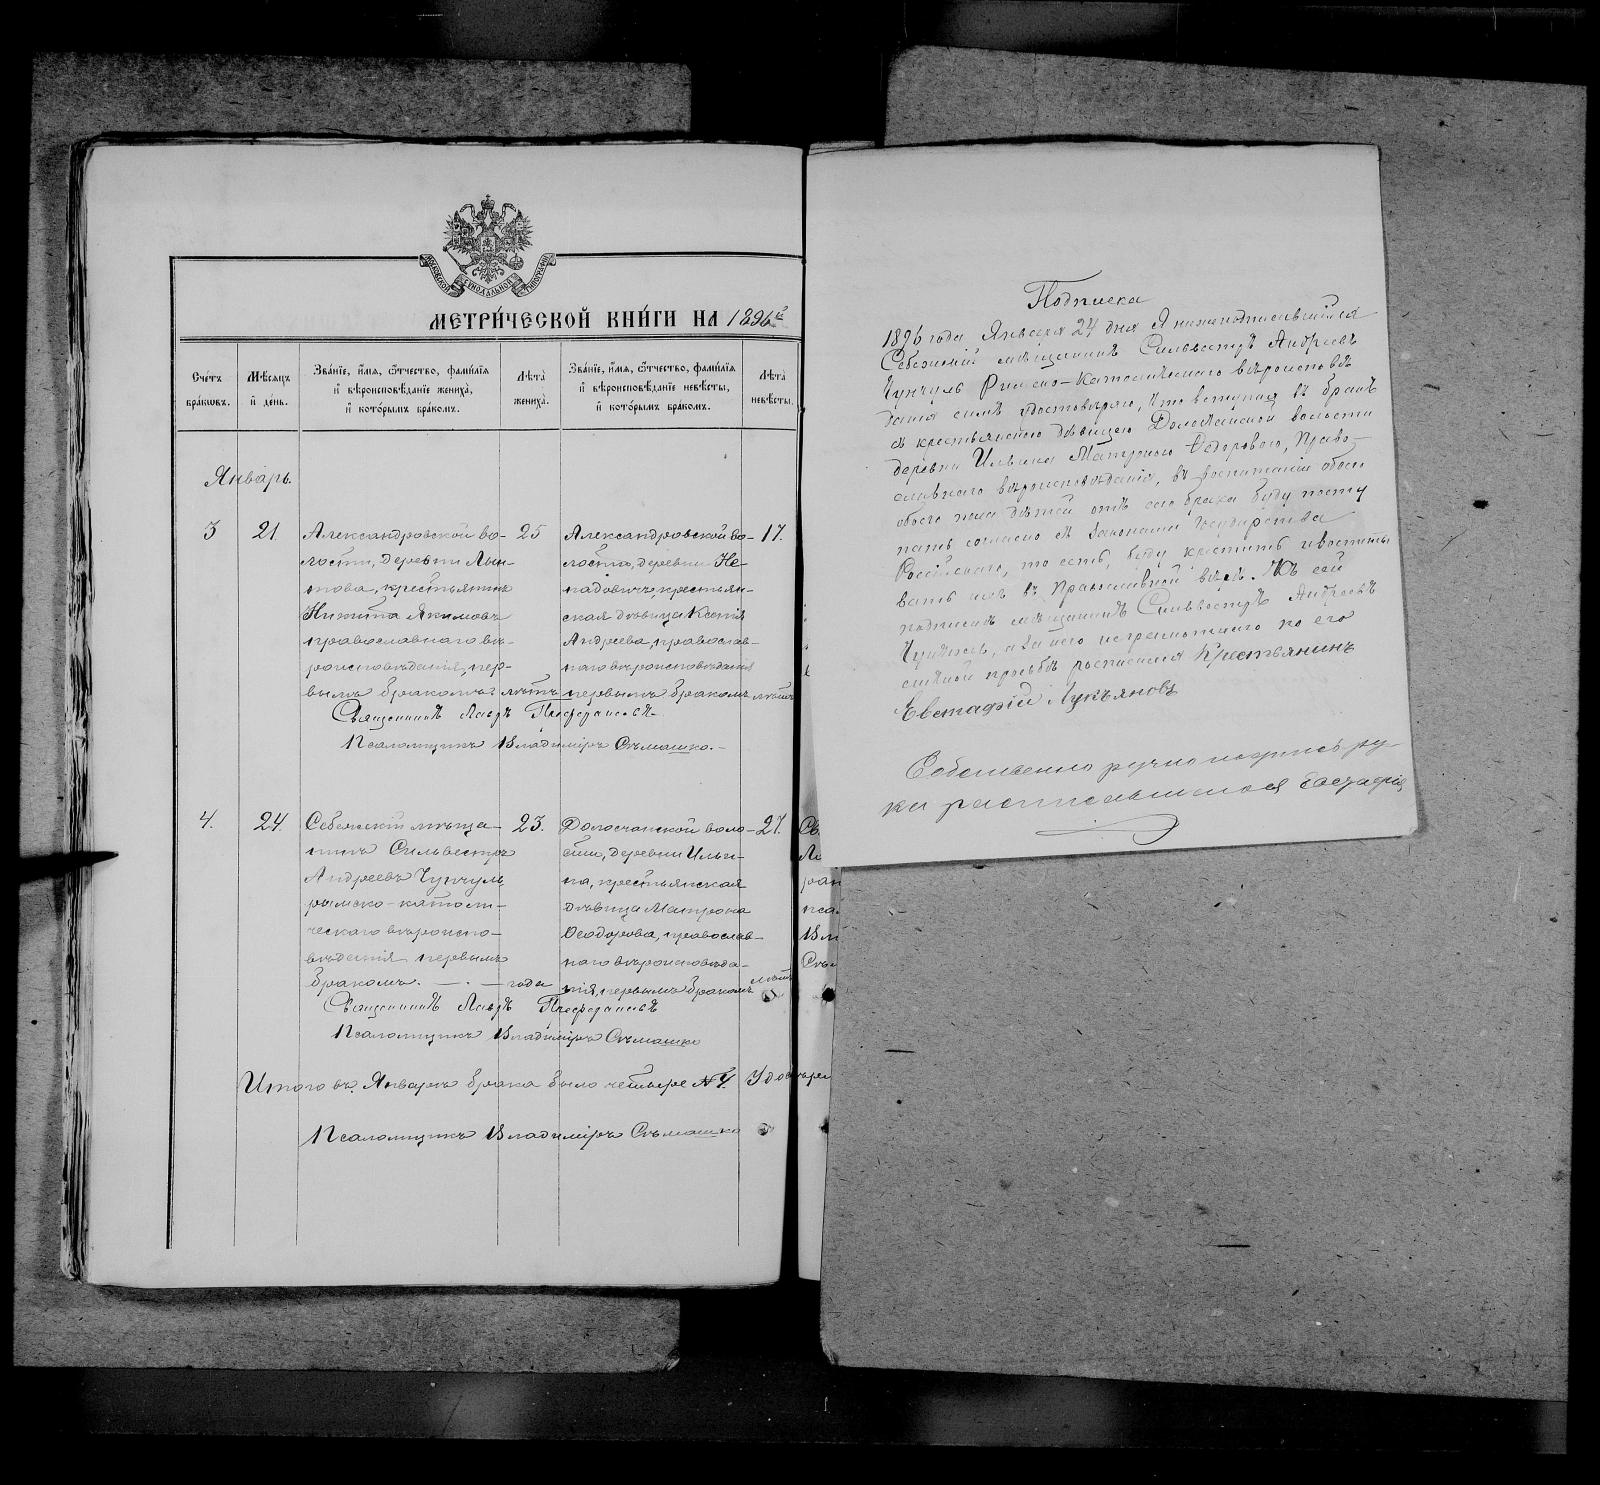 МОСКОВСКОЙ СѴНОДАЛЬНОЙ ТИПОГРАФІИ
МЕТРИ́ЧЕСКОЙ КНИ́ГИ НА 1896й
Сче́тъ бра́кѡвъ.
Мѣ́сяцъ и҆ де́нь.
Зва́нїе, и҆́мѧ, ѻ҆́тчество, фами́лїѧ и҆ вѣроисповѣ́данїе жениха̀, и҆ кото́рымъ бра́комъ.
Лѣ́та жениха̀.
Зва́нїе, и҆́мѧ, ѻ҆́тчество, фами́лїѧ и҆ вѣроисповѣ́данїе невѣ́сты, и҆ кото́рымъ бра́комъ.
Лѣ́та невѣ́сты.
Январь.
3
21.
Александровской во-
лости, деревни Лын-
това, крестьянинъ
Никита Якимовъ
православнаго вѣ-
роисповѣданія, пер-
вымъ бракомъ
25
лѣтъ
Александровской во-
лости, деревни Не-
падовичъ, крестьян-
ская дѣвица Ксенія
Андреева, православ-
наго вѣроисповѣданія
первымъ бракомъ
17.
лѣтъ
Священникъ Лавръ
Псаломщикъ Владиміръ Сѣмашко.-
4.
24.
Себежскій мѣща-
нинъ Сильвестръ
Андреевъ Чунчуль,
римско-католи-
ческаго вѣроиспо-
вѣданія первымъ
бракомъ.
23.
года
Долосчанской воло-
сти, деревни Ильи-
на, крестьянская
дѣвица Матрона
Ѳеодорова, православ-
наго вѣроисповѣда-
нія, первымъ бракомъ
27.
лѣтъ
Священникъ Лавръ
Псаломщикъ Владиміръ Сѣмашко
Итого въ Январѣ брака было четыре №4.
Псаломщикъ Владиміръ Сѣмашко
Подписка
1896 года Января 24 дня Я нижеподписавшійся
Себежскій мѣщанинъ Сильвестръ Андреевъ
Чунчуль Римско-Католическаго вѣроисповѣ
данія симъ удостовѣряю, что вступая въ бракъ
съ крестьянскою дѣвицею Долосчанской волости
деревни Ильина Матроною Ѳедоровою, Право-
славнаго вѣроисповѣданія, въ воспитаніи обоего
пола дѣтей отъ сего брака буду посту
пать согласно съ Законами Государства
Россійскаго, то есть, буду крестить и воспиты
вать ихъ въ Православной вѣрѣ. Къ сей
подпискѣ мѣщанинъ Сильвестръ Андреевъ
Чунчуль, а за него неграмотнаго по его
личной просьбѣ росписался Крестьянинъ
Евстафій Лукьяновъ
Собственно ручно подпись ру-
ки расписавшагося